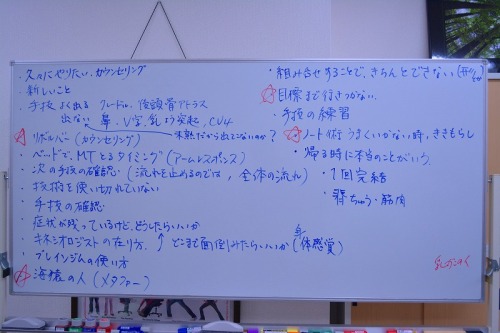 ・久々にやりたい、カウンセリング
・新しいこと
・手技 よく出る クレードル、後頭骨アトラス
出ない 鼻・V字、乳よう突起、CV4
未熟だから出てこないのか？
リボルバー（カウンセリング）
・ベッドで、MTとるタイミング（アームレスポンス）
・次の手技の確認（流れを止めるのでは、全体の流れ）
・技術を使い切れていない
・手技の確認
・症状が残っているけど、どうしたらいいか
・キネシオロジストの在り方、↑どこまで面倒みたらいいか（体感覚）
・ブレインジムの使い方
海猿の人（メタファー）
・組み合せすることで、きちんとできない
目標まで行きつかない
・手技の練習
ノート術 うまくいかない時、ききもらし
・帰る時に本当のことがいう、
・1回完結
・脊ちゅう・筋肉